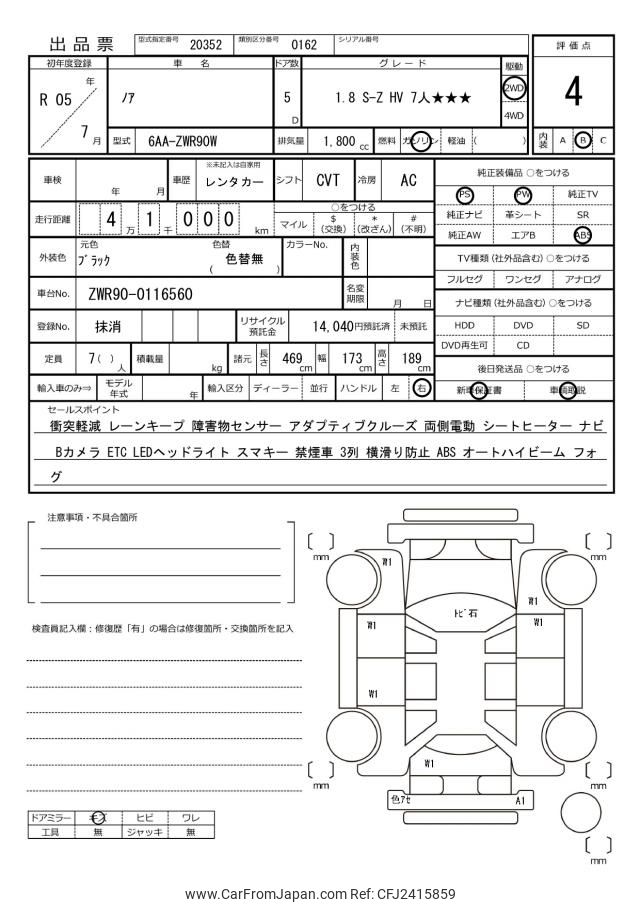 出品票
型式指定番号 20352 類別区分番号 0162 シリアル番号
評価点
初年度登録 車名 ドア数 グレード 駆動
R 05 年 7 月
ノア
5 D
1.8 S-Z HV 7人★★★
2WD
4WD
4
型式 6AA-ZWR90W 排気量 1,800 cc 燃料 ガソリン 軽油 ( )
内装 A B C
車検 年 月
車歴 ※未記入は自家用 レンタカー
シフト CVT 冷房 AC
純正装備品 ○をつける
PS PW 純正TV
純正ナビ 革シート SR
純正AW エアB ABS
走行距離 4 万 1 千 0 0 0 km
○をつける
マイル $ (交換) * (改ざん) # (不明)
外装色 元色 ブラック 色替 ( 色替無 )
カラーNo. 内装色
TV種類 (社外品含む) ○をつける
フルセグ ワンセグ アナログ
車台No. ZWR90-0116560
名変期限 月 日
ナビ種類 (社外品含む) ○をつける
HDD DVD SD
DVD再生可 CD
登録No. 抹消
リサイクル預託金 14,040円預託済 未預託
定員 7( )人 積載量 kg 諸元 長さ 469cm 幅 173cm 高さ 189cm
後日発送品 ○をつける
新車保証書 車輌取説
輸入車のみ⇒ モデル年式 年 輸入区分 ディーラー 並行 ハンドル 左 右
セールスポイント
衝突軽減 レーンキープ 障害物センサー アダプティブクルーズ 両側電動 シートヒーター ナビ
Bカメラ ETC LEDヘッドライト スマキー 禁煙車 3列 横滑り防止 ABS オートハイビーム フォ
グ
注意事項・不具合箇所
検査員記入欄：修復歴「有」の場合は修復箇所・交換箇所を記入
mm
mm
W1
W1
トビ石
W1
W1
W1
W1
mm
mm
色アセ
A1
mm
ドアミラー キズ ヒビ ワレ
工具 無 ジャッキ 無
www.CarFromJapan.com Ref: CFJ2415859